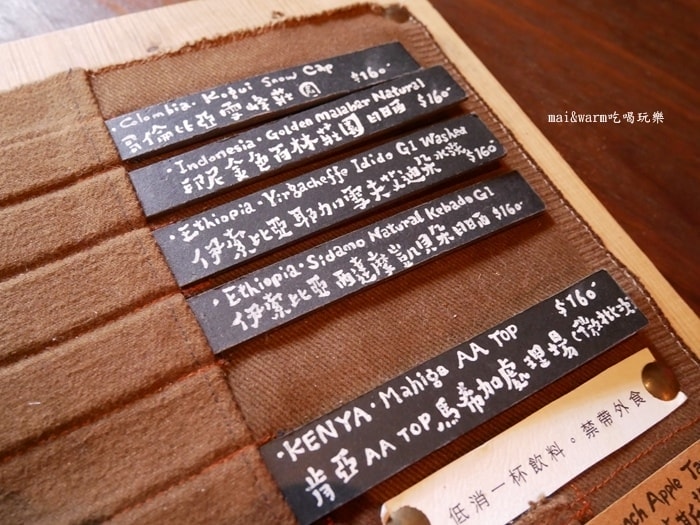 mai&warm吃喝玩樂
·Colombia·Kogui Snow Cap $160
哥倫比亞雪峰莊園
·Indonesia·Golden Malabar Natural
印尼金色百林莊園日曬 $160
·Ethiopia·Yirgacheffe Idido G1 Washed
伊索比亞耶加雪夫艾迪朵水洗 $160
·Ethiopia·Sidamo Natural Kebado G1
伊索比亞西達摩凱貝朵日曬 $160
·KENYA·Mahiga AA TOP $160
肯亞AA TOP馬希加處理場
低消一杯飲料。禁帶外食
Apple